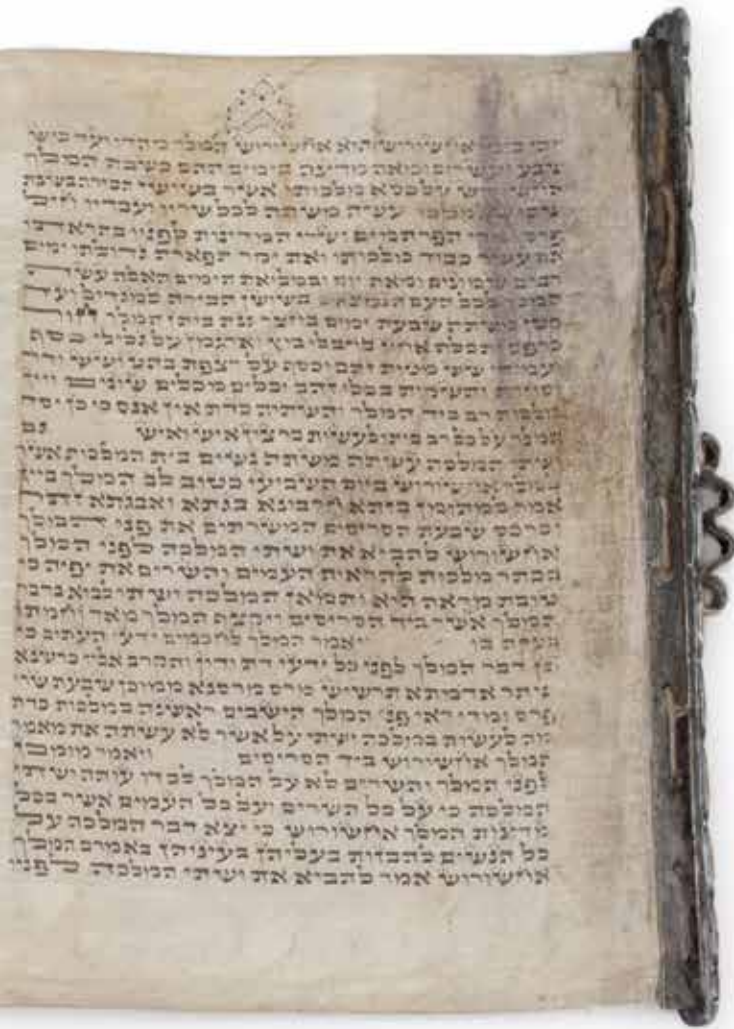 ויהי בימי אחשורוש הוא אחשורוש המלך מהדו ועד כוש
שבע ועשרים ומאה מדינה בימים ההם כשבת המלך
אחשורוש על כסא מלכותו אשר בשושן הבירה בשנת
שלוש למלכו עשה משתה לכל שריו ועבדיו חיל
פרס ומדי הפרתמים ושרי המדינות לפניו בהראתו
את עשר כבוד מלכותו ואת יקר תפארת גדולתו ימים
רבים שמונים ומאת יום ובמלואת הימים האלה עשה
המלך לכל העם הנמצאים בשושן הבירה למגדול ועד
קטן משתה שבעת ימים בחצר גנת ביתן המלך חור
כרפס ותכלת אחוז בחבלי בוץ וארגמן על גלילי כסף
ועמודי שש מטות זהב וכסף על רצפת בהט ושש ודר
וסחרת והשקות בכלי זהב וכלים מכלים שונים ויין
מלכות רב כיד המלך והשתיה כדת אין אנס כי כן יסד
המלך על כל רב ביתו לעשות כרצון איש ואיש גם
ושתי המלכה עשתה משתה נשים בית המלכות אשר
למלך אחשורוש ביום השביעי כטוב לב המלך ביין
אמר למהומן בזתא חרבונא בגתא ואבגתא זתר
וכרכס שבעת הסריסים המשרתים את פני המלך
אחשורוש להביא את ושתי המלכה לפני המלך
בכתר מלכות להראות העמים והשרים את יפיה כי
טובת מראה היא ותמאן המלכה ושתי לבוא בדבר
המלך אשר ביד הסריסים ויקצף המלך מאד וחמתו
בערה בו ויאמר המלך לחכמים ידעי העתים כי
כן דבר המלך לפני כל ידעי דת ודין והקרב אליו כרשנא
שתר אדמתא תרשיש מרס מרסנא ממוכן שבעת שרי
פרס ומדי ראי פני המלך הישבים ראשנה במלכות כדת
מה לעשות במלכה ושתי על אשר לא עשתה את מאמר
המלך אחשורוש ביד הסריסים ויאמר מומכן
לפני המלך והשרים לא על המלך לבדו עותה ושתי
המלכה כי על כל השרים ועל כל העמים אשר בכל
מדינות המלך אחשורוש כי יצא דבר המלכה על
כל הנשים להבזות בעליהן בעיניהן באמרם המלך
אחשורוש אמר להביא את ושתי המלכה לפניו